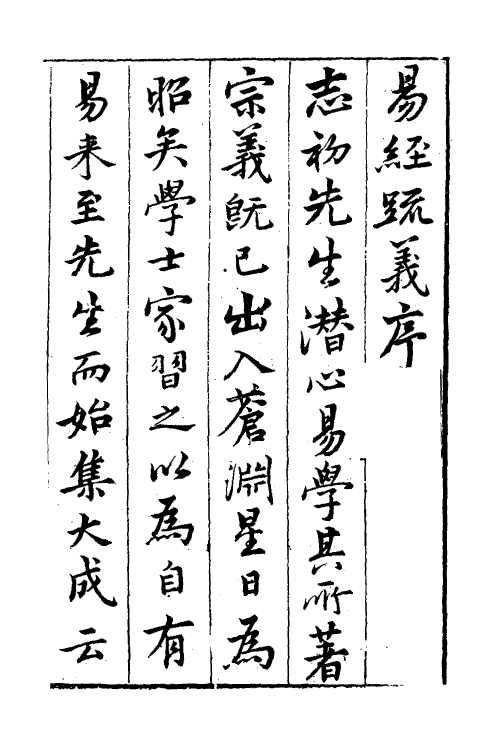 易經䟽義序
志初先生潛心易學其所著
宗義旣已出入蒼淵星日為
昭矣學士家習之以為自有
易来至先生而始集大成云